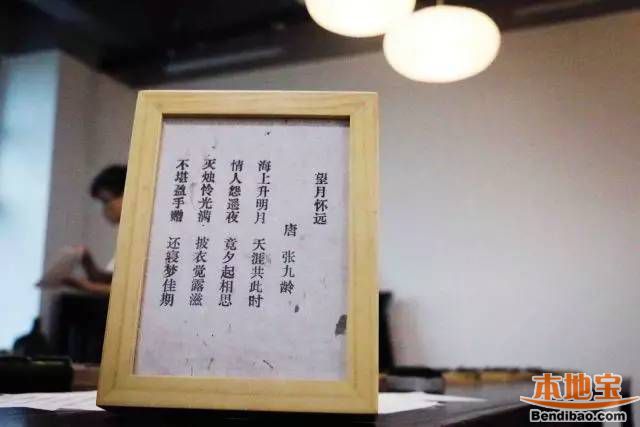 望月怀远
唐 张九龄
海上升明月 天涯共此时
情人怨遥夜 竟夕起相思
灭烛怜光满 披衣觉露滋
不堪盈手赠 还寝梦佳期
本地宝
Bendibao.com